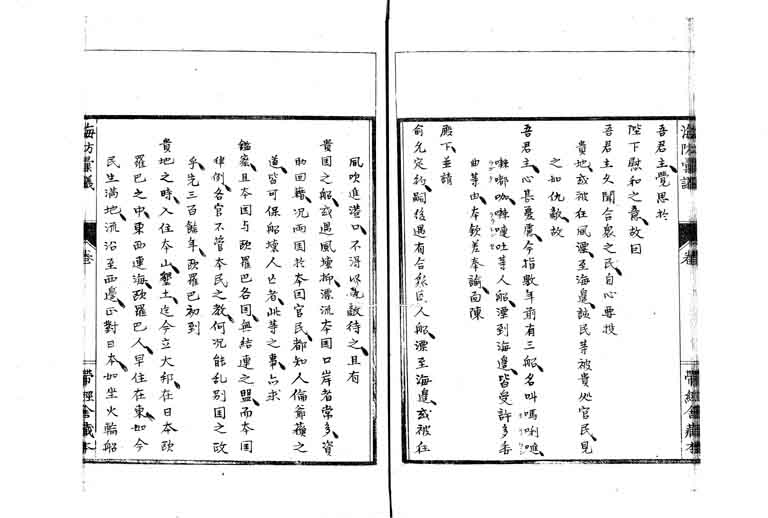 海防彙議 卷 帶經舍藏本
吾君主覺思於
陛下慰和之意故囙
吾君主久聞合衆之民自心要投
貴地或被在風漂至海邊該民等被貴処官民見
之如仇敵故
吾君主心甚憂慮今指數年前有三船名叫嗎唎
嘟咖吐等人船漂到海邊皆受許多委
曲等由本欽差奉諭面陳
殿下並請
俞允定約嗣後遇有合衆囯人船漂至海邊或被在
風吹進港口不得以敵待之且有
貴国之船或遇風壊抑漂流本国口岸者常多資
助回籍况兩国於本国官民都知人倫之
道皆可保船壊人亡者此等之事亦求
鑑察且本国与欧羅巴各国無結連之盟而本国
律例各官不管本民之教何况能乱別国之政
乎先三百餘年欧羅巴初到
貴地之時入住本山墾土迄今立大邦在日本欧
羅巴之中東西運海欧羅巴人早住在東如今
民生滿地流沿至西邊正對日本如坐火輪船
海防彙議 卷 帶經舍藏本